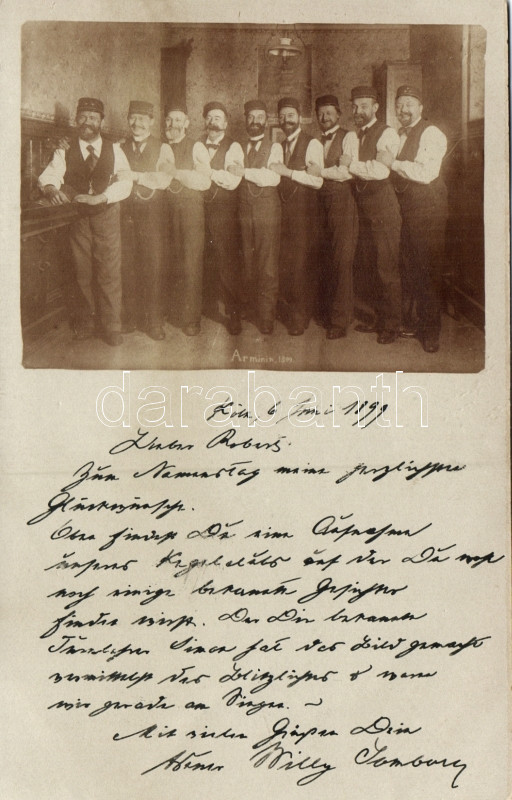 Arminia, 1891
darabanth
Köln, 6 Juni 1899
Lieber Robert.
Zum Namenstag meine herzlichsten
Glückwünsche.
Oben findest Du eine Aufnahme
unseres Kegelclubs auf der Du wohl
noch einige bekannte Gesichter
finden wirst. Der Dir bekannte
Simon hat das Bild gemacht
vermittelst des Blitzlichtes & waren
wir gerade am Singen. ~
Mit vielen Grüßen Dein
Willy